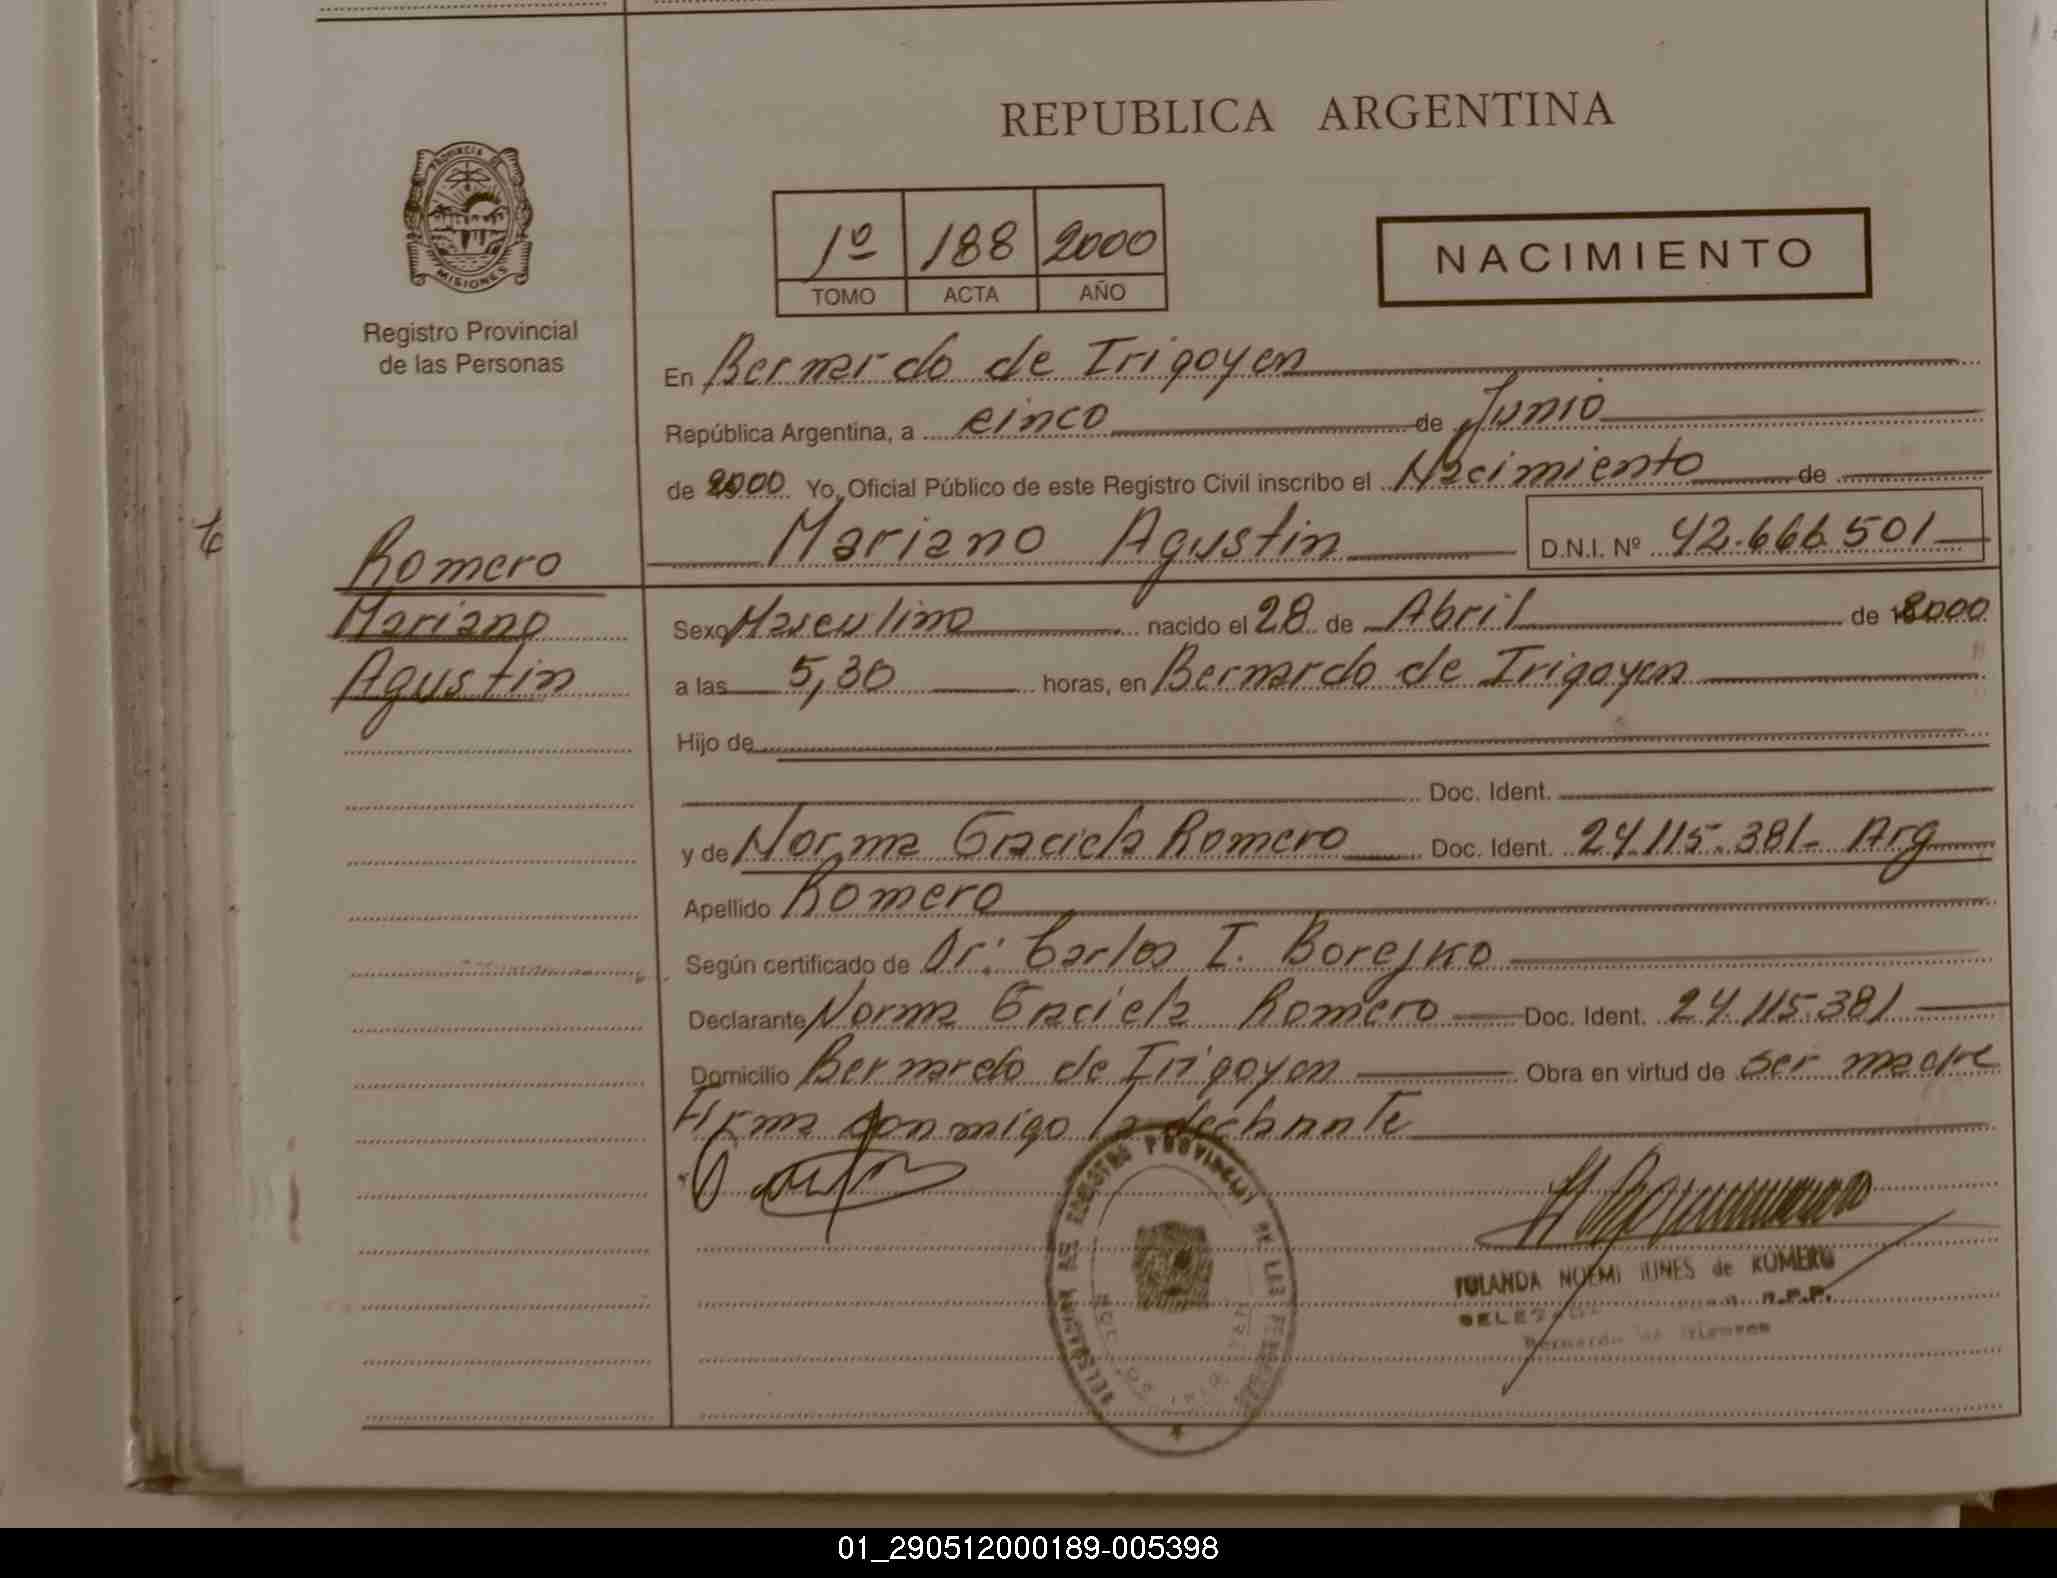 REPUBLICA ARGENTINA
PROVINCIA DE
MISIONES
Registro Provincial
de las Personas
1º 188 2000
TOMO ACTA AÑO
NACIMIENTO
En Bernardo de Irigoyen
República Argentina, a cinco de Junio
de 2000 Yo, Oficial Público de este Registro Civil inscribo el Nacimiento de
Mariano Agustin D.N.I. Nº 42.666.501
Romero
Mariano
Agustin
Sexo Masculino nacido el 28 de Abril de 2000
a las 5,30 horas, en Bernardo de Irigoyen
Hijo de
Doc. Ident.
y de Norma Graciela Romero Doc. Ident. 24.115.381- Arg
Apellido Romero
Según certificado de Dr: Carlos I. Borejko
Declarante Norma Graciela Romero Doc. Ident. 24.115.381
Domicilio Bernardo de Irigoyen Obra en virtud de ser madre
Firma conmigo la declarante
REGISTRO PROVINCIAL DE LAS PERSONAS
YOLANDA NOEMI de ROMERO
R.P.P.
Bernardo de Irigoyen
01_290512000189-005398